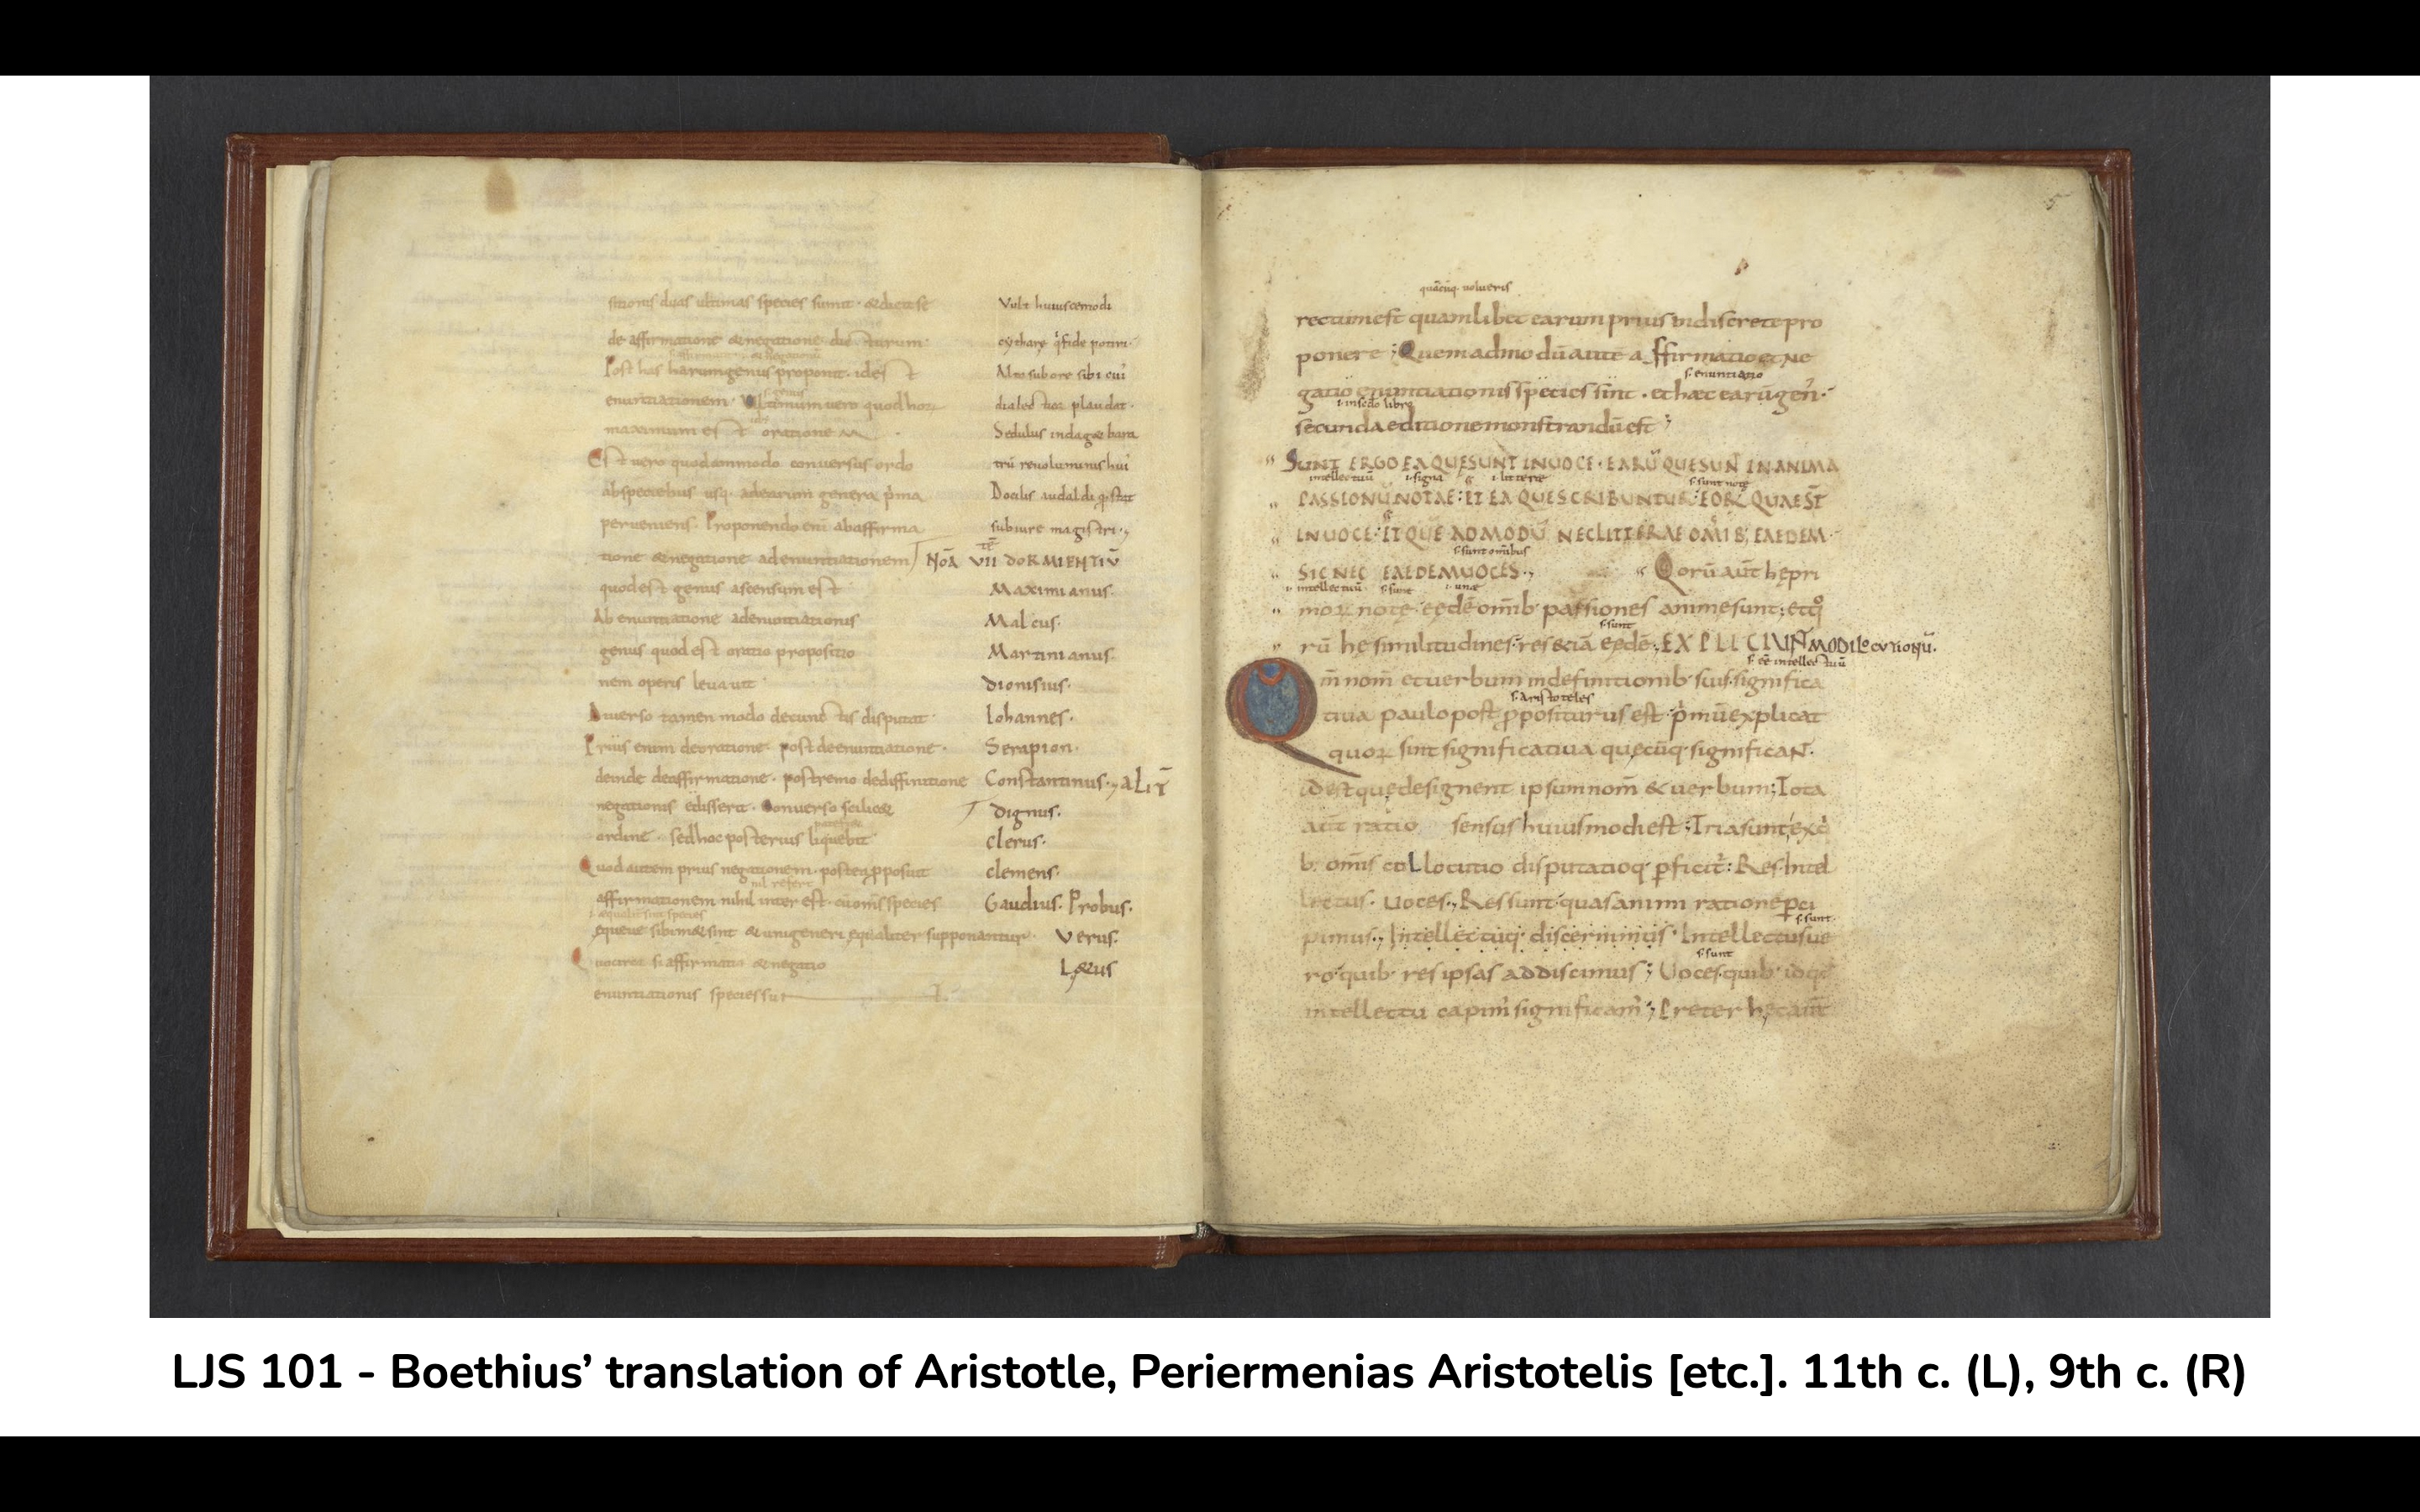 sitionis duas ultimas species sumit · & dicit se
de affirmatione & negatione dicturum·
Post has harum genus proponit · id est
enuntiationem · Ultimum vero quod hor
maximum est orationem
Est vero quodammodo conversus ordo
ab speciebus usq· ad earum genera p̍ma
perveniens· Proponendo eni ab affirma
tione & negatione ad enuntiationem
quod est genus ascensum est
Ab enuntiatione ad enuntiationis
genus quod est oratio propositio
nem operis levavit
Diverso tamen modo de cunctis disputat·
Prius enim de oratione· post de enuntiatione·
deinde de affirmatione· postremo de diffinitione
negationis edisserit· Converso scilic&
ordine· sed hoc posterius liquebit
Quod autem prius negationem· postea pposuit
nil refert
affirmationem nihil inter est· cū om̄s species
equeve sibim& sint & uni generi equaliter supponantur·
Quocirca si affirmatio & negatio
enuntiationis species sunt
Vult huiuscemodi
cythare q̍ fide potiri·
Alto sub ore sibi cui̍
dialectior plaudat·
Sedulus indag& bara
trū revoluminis hui̍
Docilis audal di q̍
subiure magistri·,
NOA VII DORMIENTIŪ
Maximianus·
Malcus·
Martinianus·
dionisius·
Iohannes·
Serapion·
Constantinus·, ALIT̄
dignus·
clerus·
clemens·
Gaudius· Probus·
Verus·
L&us
5
quācūq· volueris
rectum est quamlibet earum prius indiscrete pro
ponere ; Quemadmodū autē affirmatio et Ne
s· enuntiatio
gatio enuntiationis species sint · et hæc earū gen̍·
i· in scd̄o libro
secunda editione monstrandū est ;
SUNT ERGO EA QUĘ SUNT IN VOCE · EARŪ QUE SUN̄ IN ANIMA
intellectuū i· signa i· litterę s· sunt notę
PASSIONŪ NOTAE : ET EA QUE SCRIBUNTUR : EOR̄ QUAE ST̄
IN VOCE· ET QUE AD MODŪ NEC LITTERAE OM̄IB; EAEDEM·
s· sunt omībus
SIC NEC EAEDEM VOCES·, Qorū aūt hę pri
i· intellectuū s· sunt i· unę
moꝝ notę· eędē om̄ib· passiones animę sunt; et q̊
s· sunt
rū hę similitudines· res &iā eędē·, EXPLICIUN̄ MODI LOCUTIONŪ·
s· eē intellectuū
Qm̄ nom̄ et verbum in definitionib· suis· significa
s· Aristoteles
tiva paulo post ppositurus est· p̍mū explicat
quoꝝ sint significativa quęcūq· significaN̄·
id est quę designent ipsum nom̄ & verbum; Tota
aūt ratio sensus huiusmodi est ; Tria sunt, ex q̍
b· om̄is collocutio disputatioq· pficit̄ : Res· Intel
lectus· Voces·, Res sunt· quas animi ratione pci
s· sunt·
pimus·, Intellectuq· discernimus· Intellectus ve
s· sunt
ro· quib· res ipsas addiscimus ; Voces· quib· id q̊
intellectu capim̍ significam̍ ; Preter hęc aūt
LJS 101 - Boethius’ translation of Aristotle, Periermenias Aristotelis [etc.]. 11th c. (L), 9th c. (R)